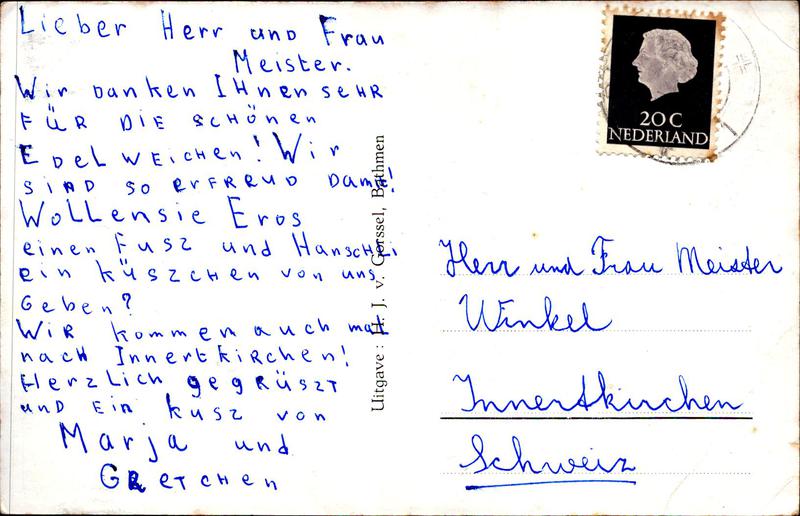 Lieber Herr und Frau
Meister.
Wir danken IHnen sEHR
FÜR DIE SCHÖNEN
EdEL WEICHEN! WIR
SIND so erFREUD DAMit!
WOLLENSIE EROS
einen Fusz und Hanschli
ein küszchen von uns
Geben?
WIR kommen auch mal
nach InnertKirchen!
HerzLich gegrüszt
und EIN kusz von
Marja und
GRETCHEN
Uitgave: H. J. v. Gorssel, Bathmen
20C
NEDERLAND
Herr und Frau Meister
Winkel
Innertkirchen
Schweiz